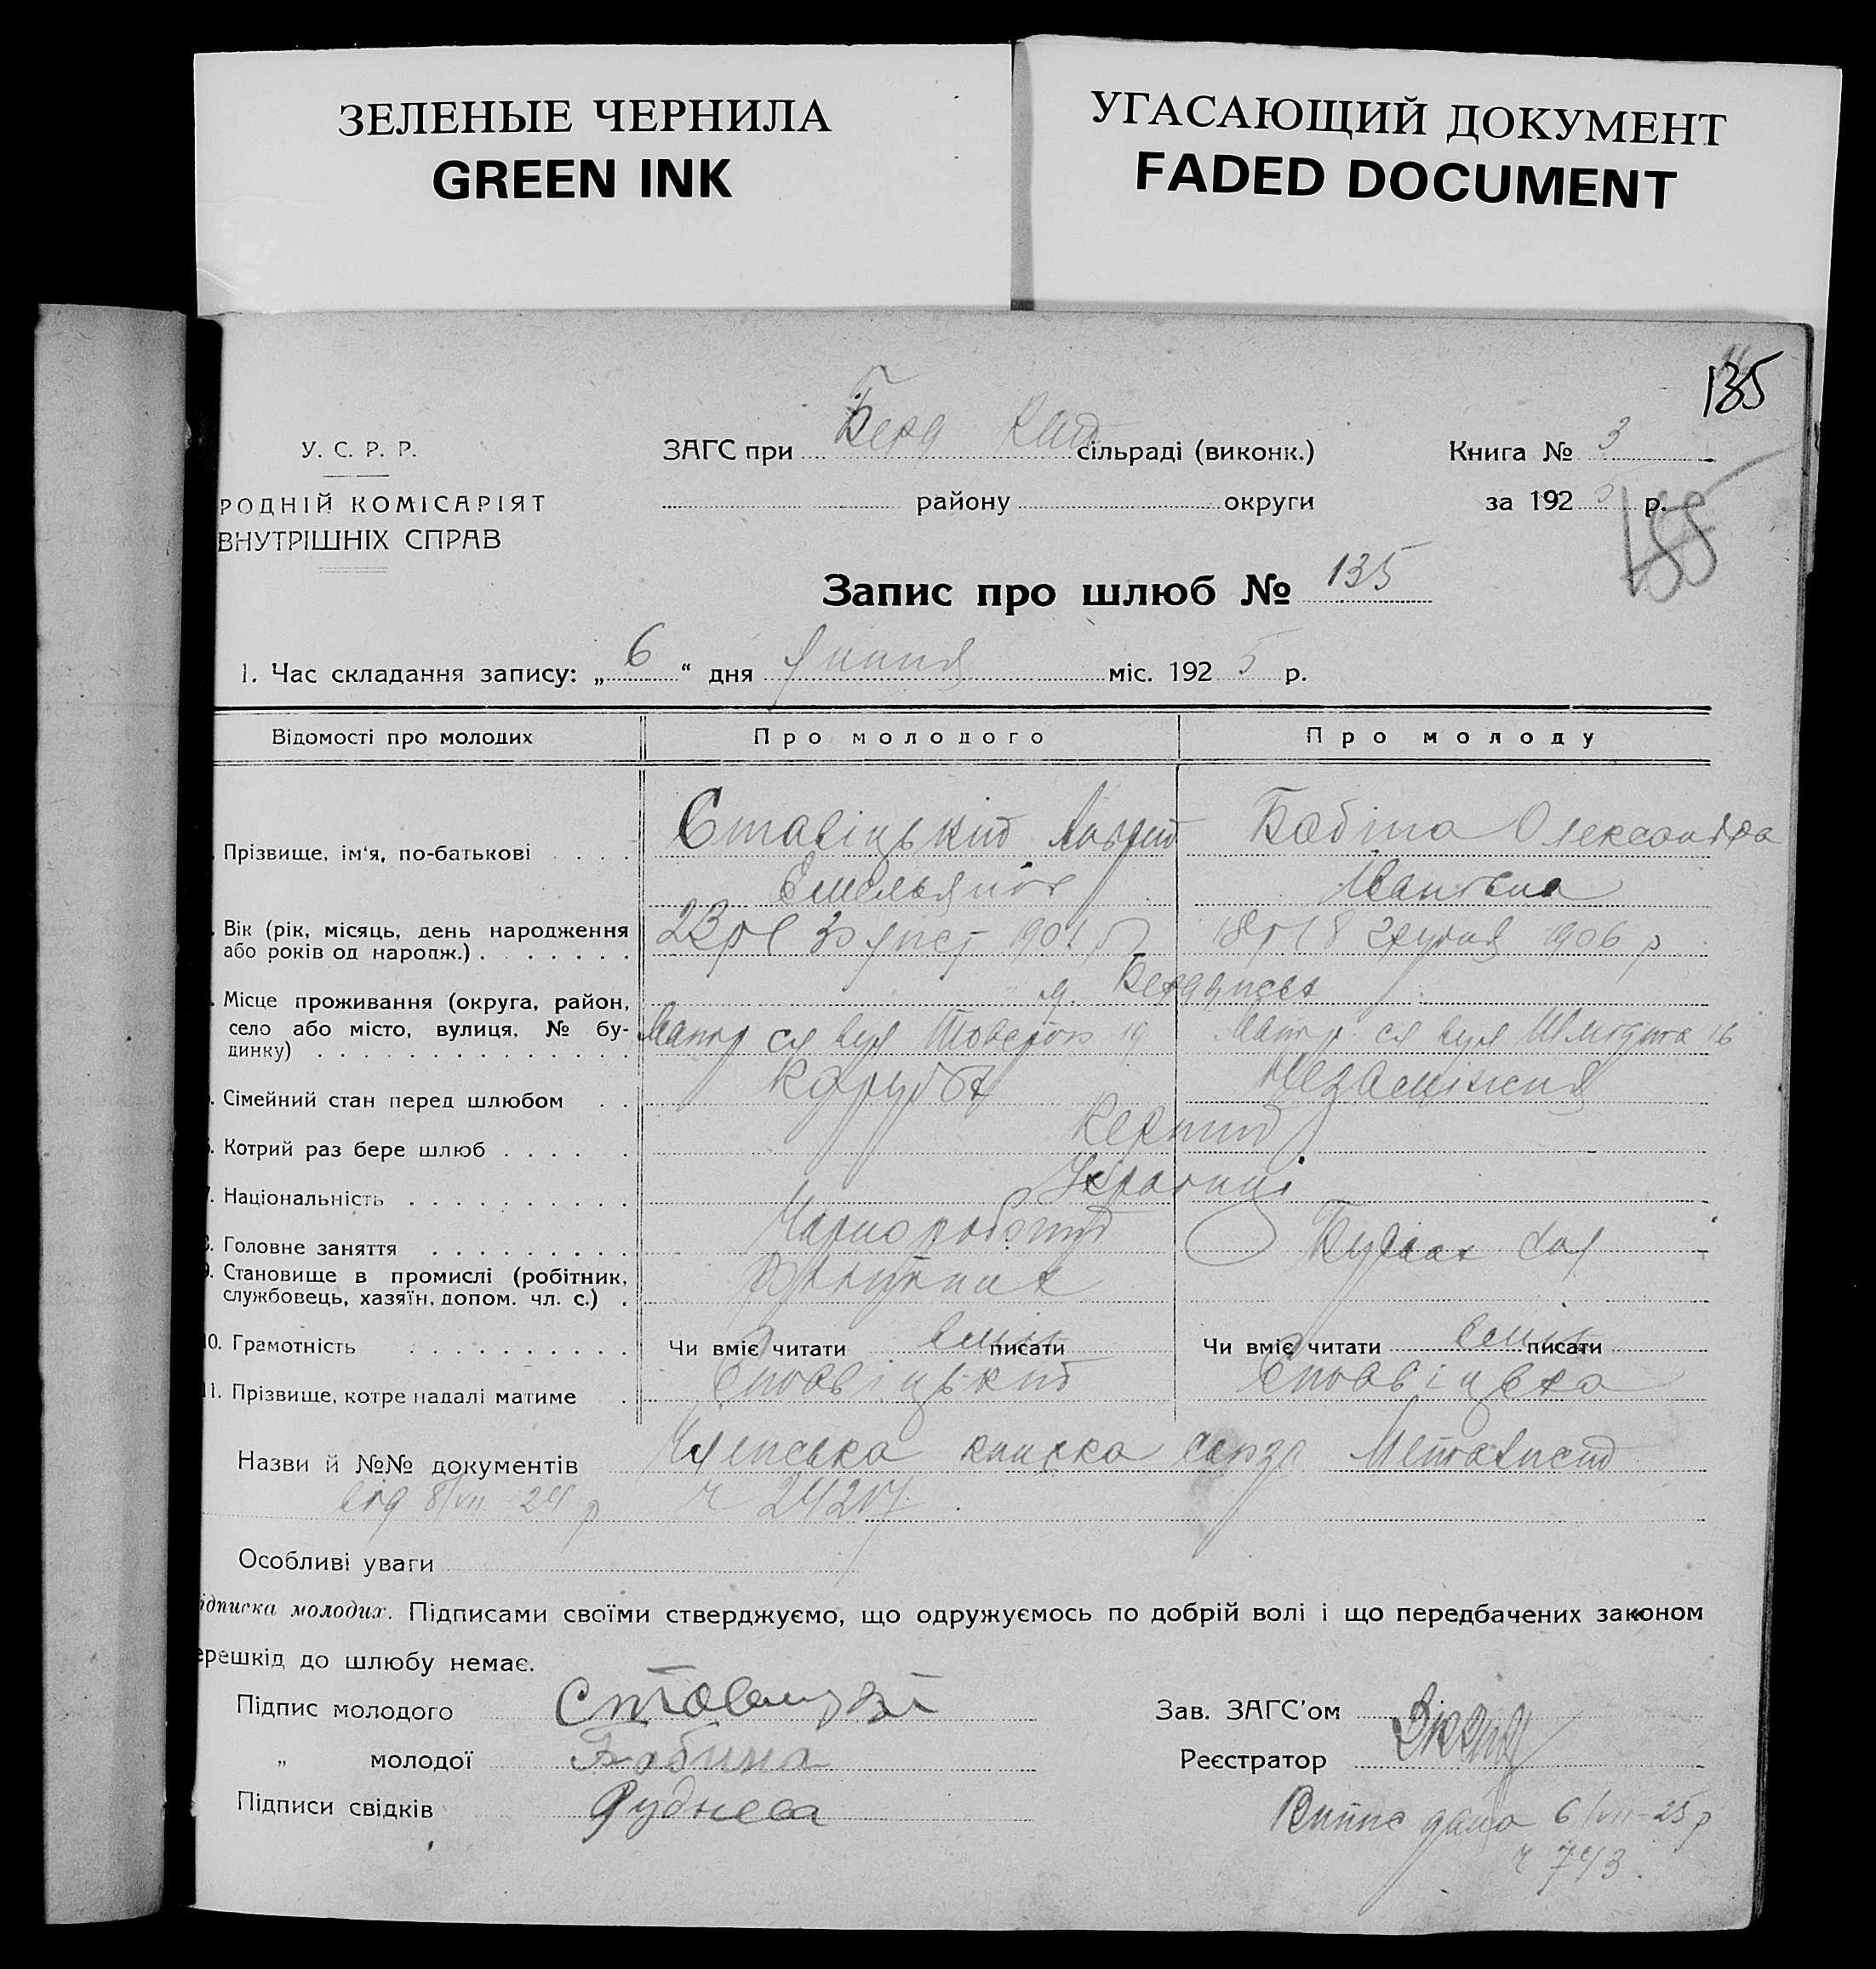 ЗЕЛЕНЫЕ ЧЕРНИЛА
GREEN INK
УГАСАЮЩИЙ ДОКУМЕНТ
FADED DOCUMENT
135
У. С. Р. Р.
РОДНІЙ КОМІСАРІЯТ
ВНУТРІШНІХ СПРАВ
ЗАГС при Берд сільраді (виконк.)
району округи
Книга № 3
за 192 5 р.
135
Запис про шлюб № 135
1. Час складання запису: „ 6 “ дня липня міс. 192 5 р.
Відомості про молодих Про молодого Про молоду
Прізвище, ім‘я, по-батькові Ставіцький Бабіна Олександра
Емельянов Іванівна
Вік (рік, місяць, день народження
або років од народж.) 23 р 30 лист 1901 р 18 р 18 грудня 1906 р
Місце проживання (округа, район,
село або місто, вулиця, № бу-
динку)
м. Бердянськ
19 Шмідта 16
Сімейний стан перед шлюбом Незаміжня
Котрий раз бере шлюб Первий
7. Національність Українці
8. Головне заняття Чорноробочий
9. Становище в промислі (робітник,
службовець, хазяїн, допом. чл. с.)
10. Грамотність Чи вміє читати писати Чи вміє читати писати
11. Прізвище, котре надалі матиме Ставіцький Ставіцька
Назви й №№ документів Членська книжка союза Металистів
від 8/VII – 24 р ч 24217
Особливі уваги
ідписка молодих. Підписами своїми стверджуємо, що одружуємось по добрій волі і що передбачених законом
ерешкід до шлюбу немає.
Підпис молодого
„ молодої Бабина
Підписи свідків Руднева
Зав. ЗАГС'ом
Реєстратор
Випис дано 6/VII–25 р
ч 743